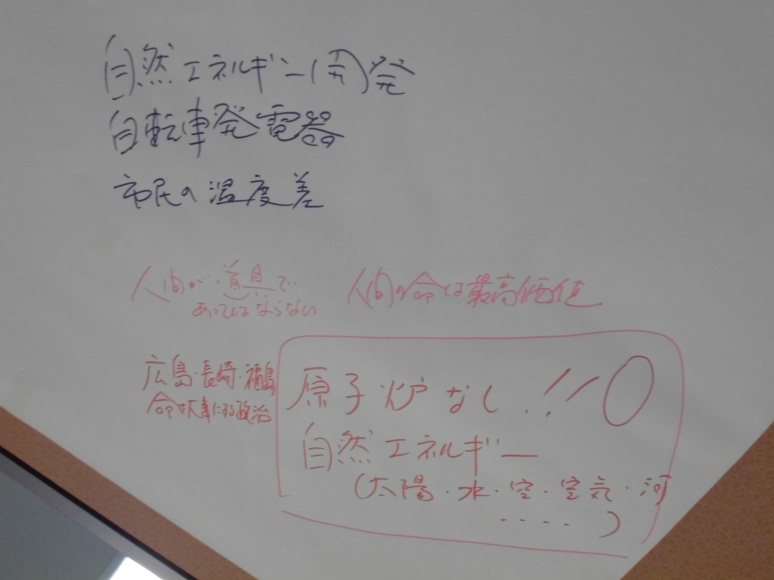 自然エネルギー開発
自転車発電器
市民の温度差
人間が道具で
あってはならない
人間の命は最高価値
広島・長崎・福島
命を大事にする政治
原子炉なし!! 0
自然エネルギー
(太陽・水・空・空気・河
・・・・)